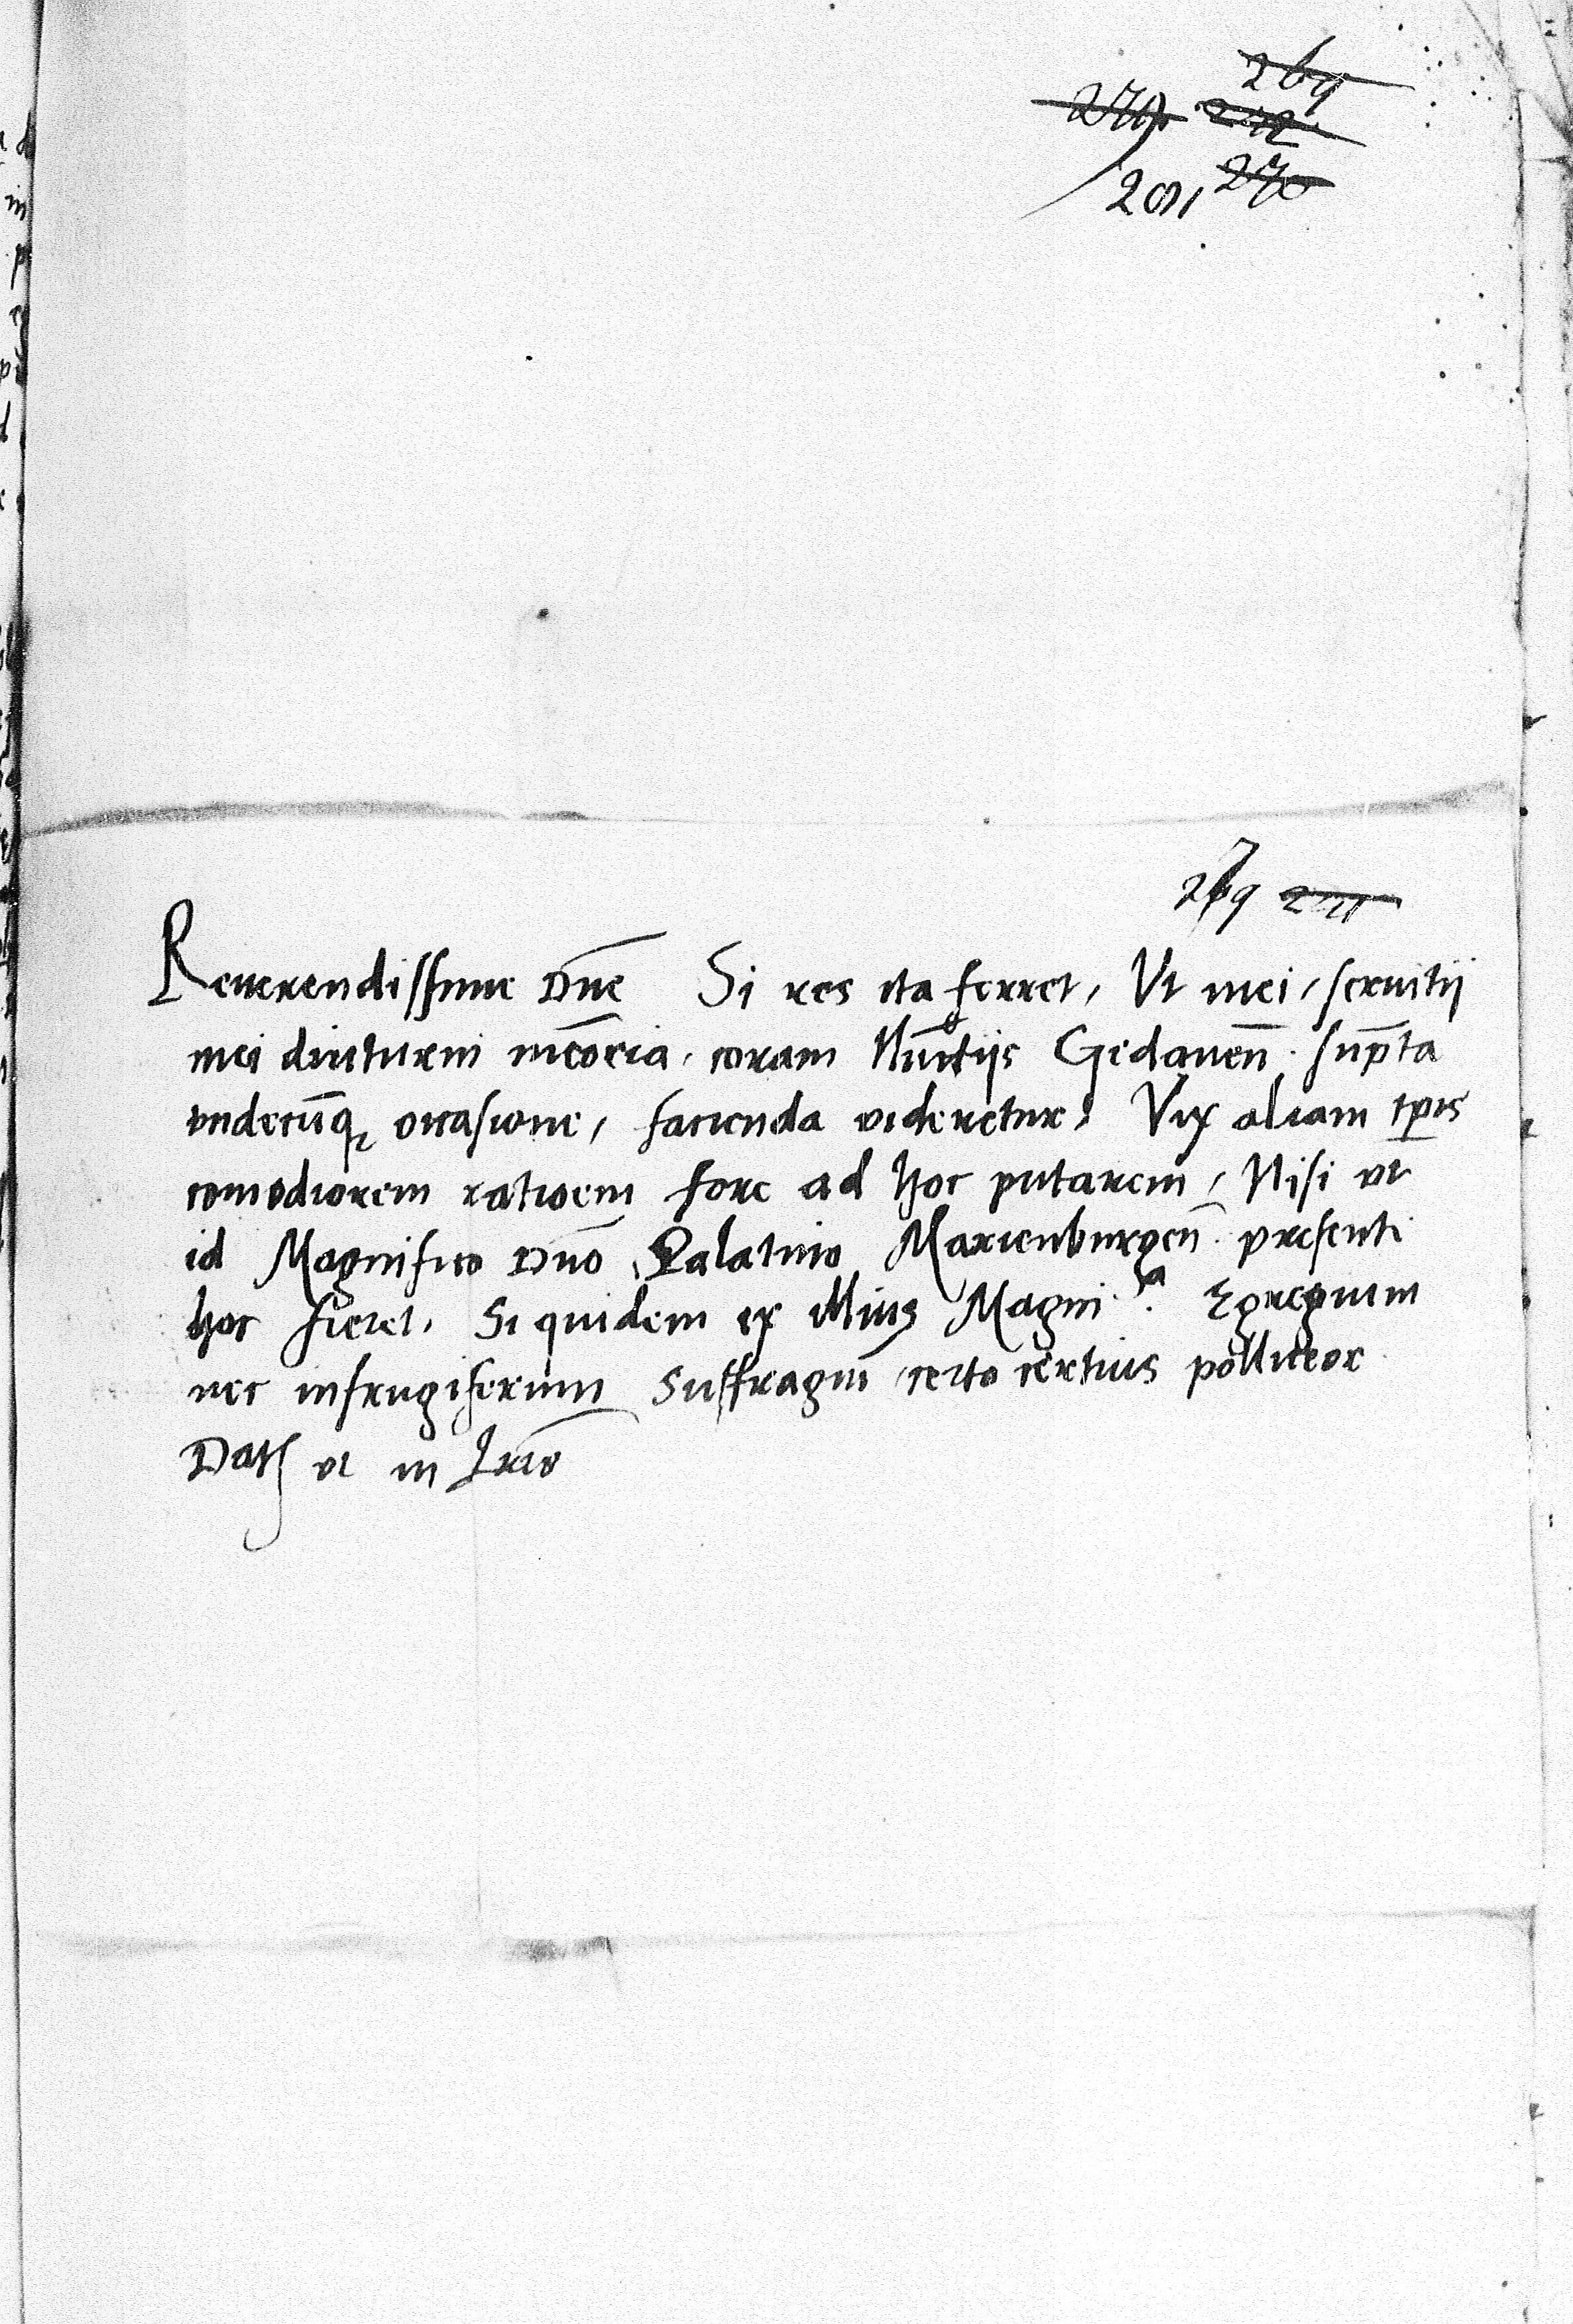 269
270
201
269
Reuerendissime Dn̄e Si res ita ferret, Vt mei, seruitij
mei diuturni mēoria, coram Nūctijs Gedanen̄. sup̄ta
vndecūq, occasione, facienda videretur, Vix aliam tp̄is
comodiorem ratioem fore ad hoc putarem, Nisi vt
id Magnifico Dn̄o Palatino Marienburgen̄. presenti
hoc fieret, Siquidem ex illius Magni.ᵃ Egregium
nec infrugiferum Suffragiū certo certius polliceor
Dat vt in Lr̄is